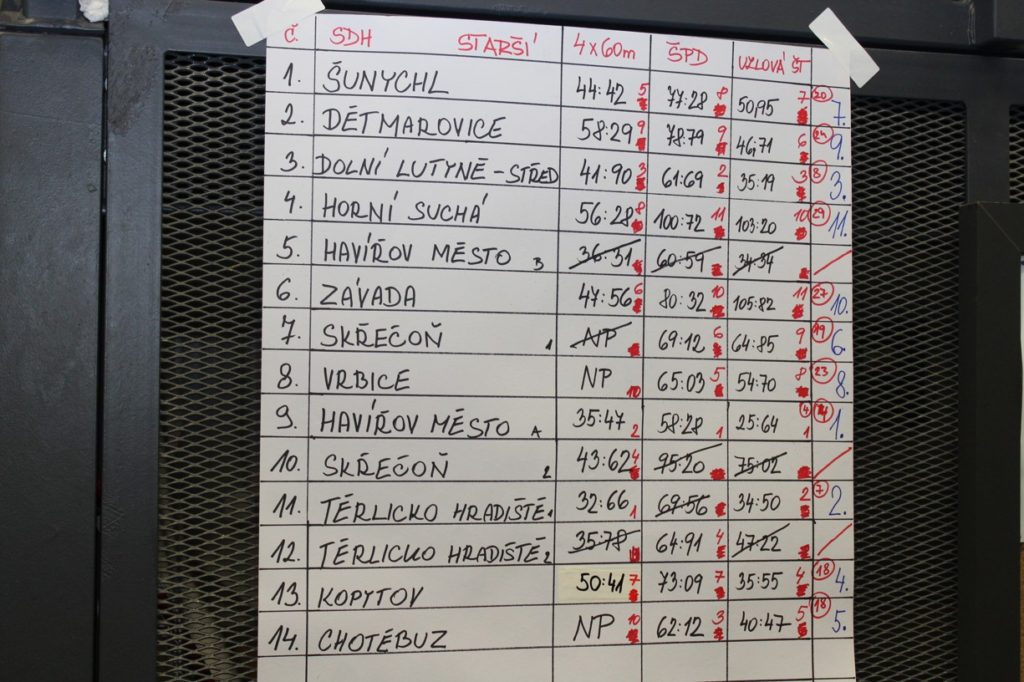 Č. SDH STARŠÍ 4x60m ŠPD UZLOVÁ ŠT
1. ŠUNYCHL 44:42 5 77:28 8 50,95 7 20 7.
2. DĚTMAROVICE 58:29 9 78.79 9 46,71 6 24 9.
3. DOLNÍ LUTYNĚ - STŘED 41:90 3 61:69 2 35:19 3 8 3.
4. HORNÍ SUCHÁ 56:28 8 100:72 11 103:20 10 29 11.
5. HAVÍŘOV MĚSTO B 36:31 60:59 34:34
6. ZÁVADA 47:56 6 80:32 10 105:82 11 27 10.
7. SKŘEČOŇ 1 NP 69:12 6 64:85 9 19 6.
8. VRBICE NP 10 65:03 5 54:70 8 23 8.
9. HAVÍŘOV MĚSTO A 35:47 2 58:28 1 25:64 1 4 1.
10. SKŘEČOŇ 2 43:62 4 95:20 75:02
11. TĚRLICKO HRADIŠTĚ 1 32:66 1 67:56 34:50 2 7 2.
12. TĚRLICKO HRADIŠTĚ 2 35:78 64:91 4 47:22
13. KOPYTOV 50:41 7 73:09 7 35:55 4 18 4.
14. CHOTĚBUZ NP 10 62:12 3 40:47 5 18 5.